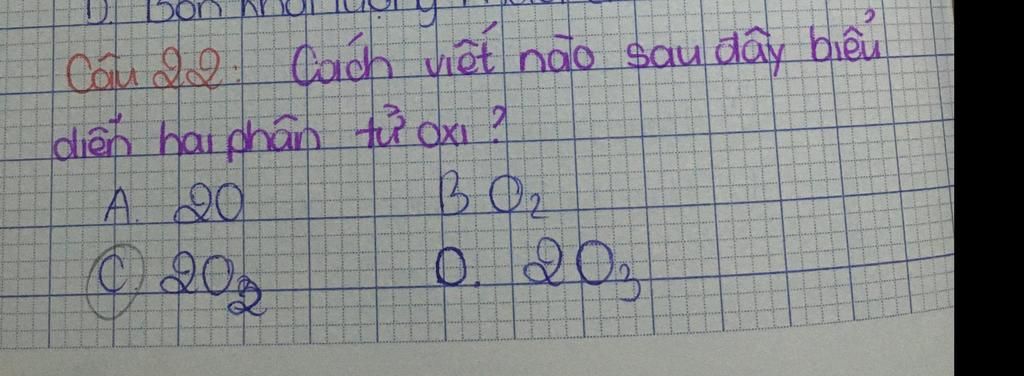 Câu 22: Cách viết nào sau đây biểu
diễn hai phân tử oxi?
A. 2O B O₂
C. 2O₂ D. 2O₃